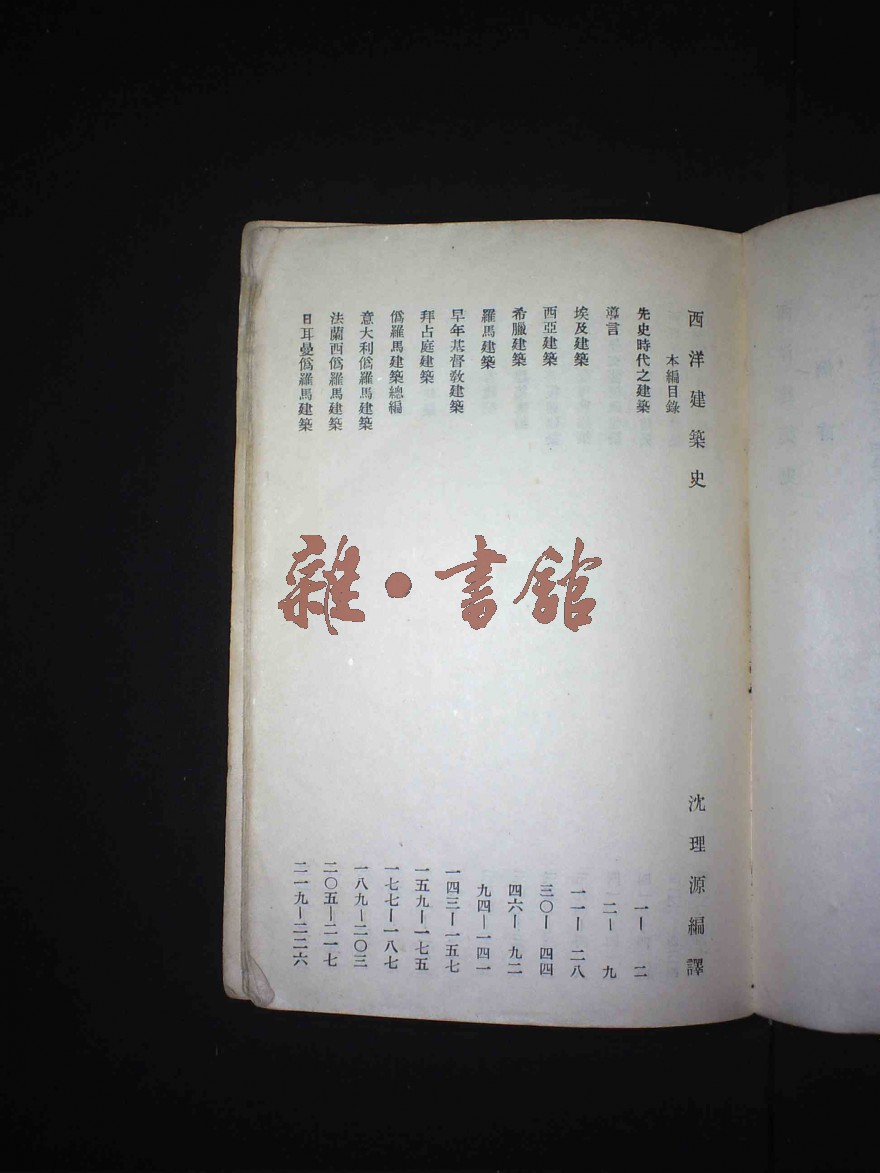 西洋建築史 沈理源編譯
本編目錄
先史時代之建築 一—二
導言 二—九
埃及建築 一一—二八
西亞建築 三〇—四四
希臘建築 四六—九二
羅馬建築 九四—一四一
早年基督教建築 一四三—一五七
拜占庭建築 一五九—一七五
僞羅馬建築總編 一七七—一八七
意大利僞羅馬建築 一八九—二〇三
法蘭西僞羅馬建築 二〇五—二一七
日耳曼僞羅馬建築 二一九—二二六
雜·書館